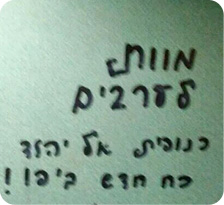 מוות
לערבים
כנופית אל יהוד
כח חדש ביפו!